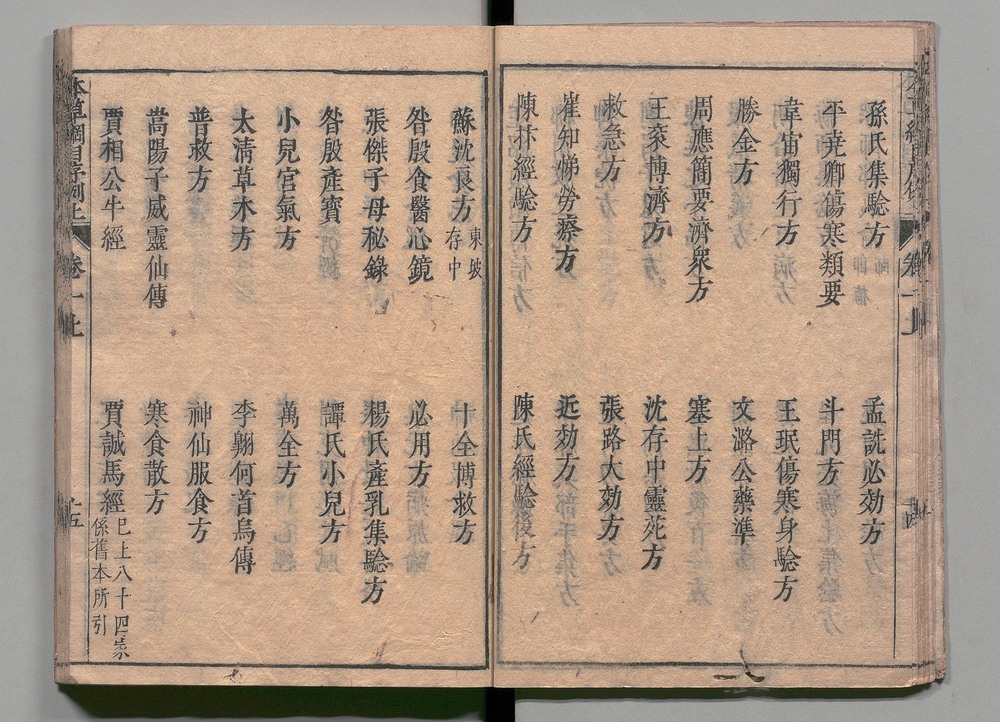 孫氏集騐方　孟詵必効方
平尭卿傷寒類要　斗門方
韋宙獨行方　王珉傷寒身騐方
勝金方　文潞公藥準
周應簡要濟衆方　塞上方
王衮博濟方　沈存中靈苑方
救急方　張路大効方
崔知悌勞瘵方　近効方
陳抃經騐方　陳氏經騐後方
蘇沈良方 東坡存中　十全博救方
昝殷食醫心鏡　必用方
張傑子母秘錄　楊氏產乳集騐方
昝殷產寶　譚氏小兒方
小兒宮氣方　萬全方
太清草木方　李翺何首烏傳
普救方　神仙服食方
嵩陽子威靈仙傳　寒食散方
賈相公牛經　賈誠馬經 已上八十四家係舊本所引
本草綱目序例上　卷一上　十五